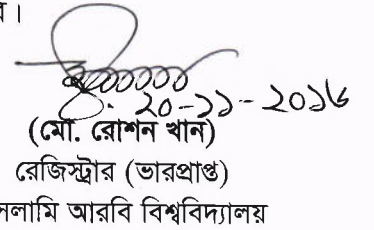 ২০-১১-২০১৬
(মো. রোশন খান)
রেজিস্ট্রার (ভারপ্রাপ্ত)
সলামি আরবি বিশ্ববিদ্যালয়